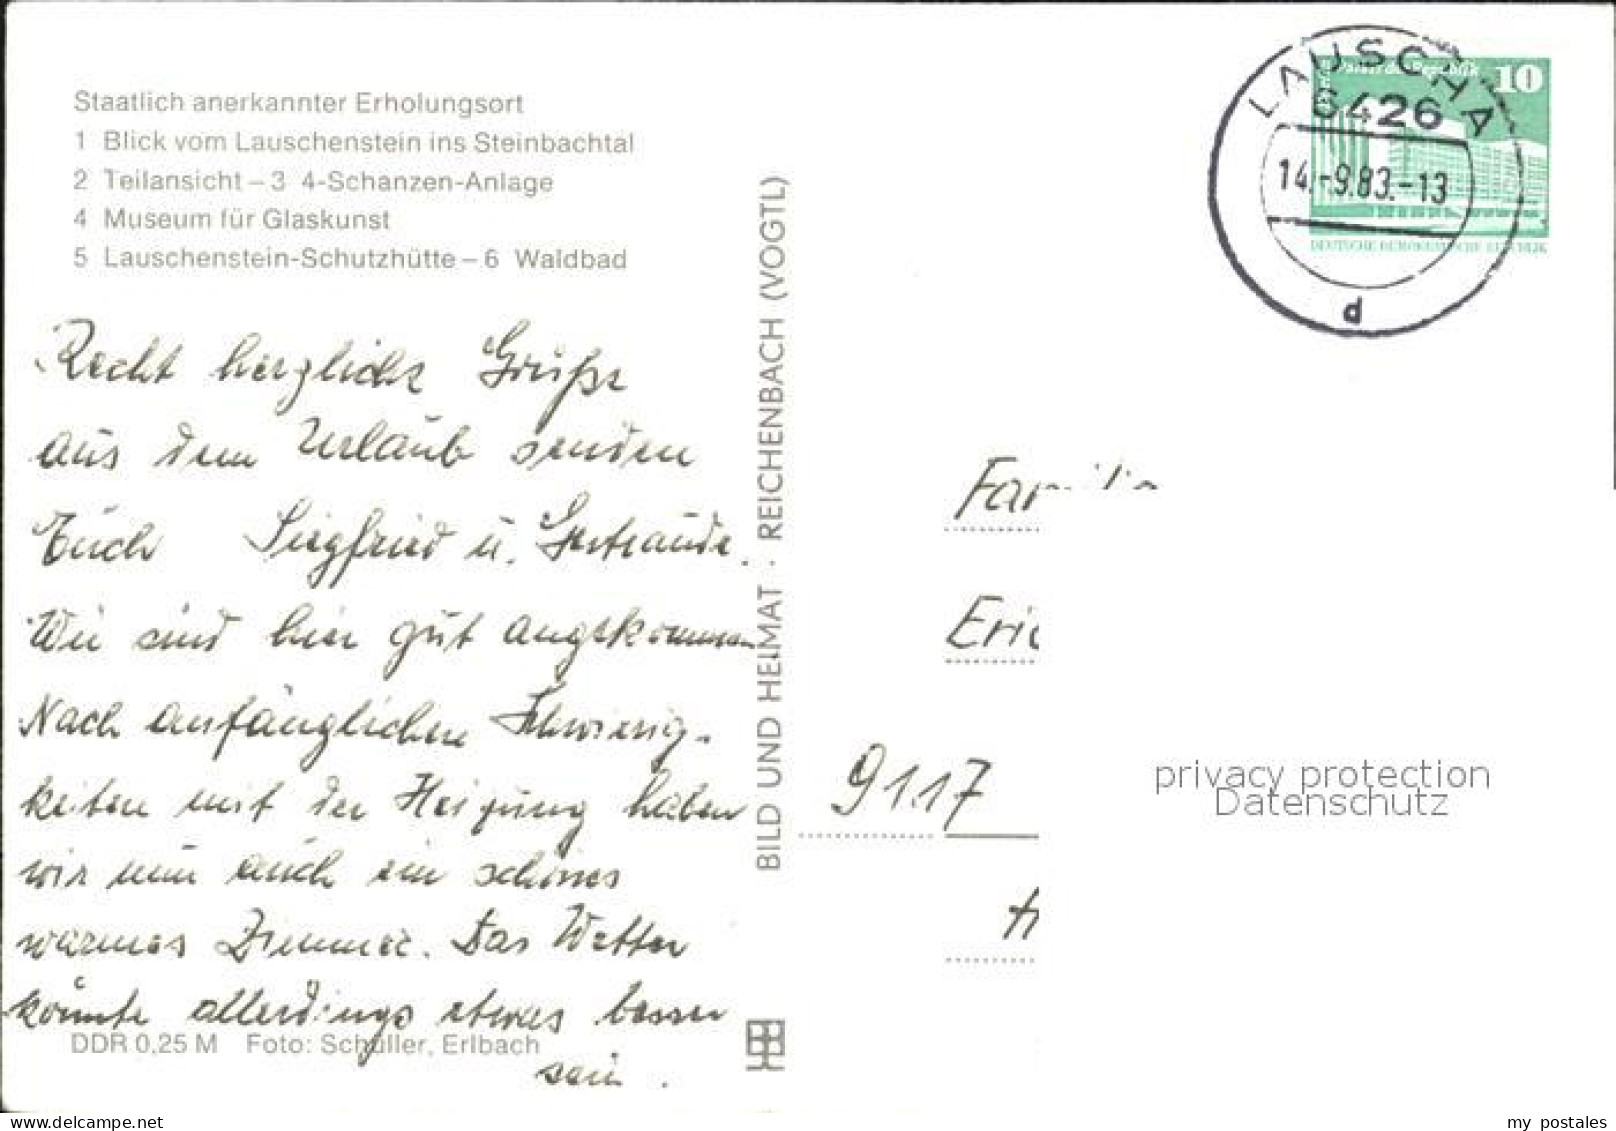 Staatlich anerkannter Erholungsort
1 Blick vom Lauschenstein ins Steinbachtal
2 Teilansicht – 3 4-Schanzen-Anlage
4 Museum für Glaskunst
5 Lauschenstein-Schutzhütte – 6 Waldbad
Recht herzliche Grüße
aus dem Urlaub senden
Euch Siegfried u. Gertraude.
Wir sind hier gut angekommen.
Nach anfänglichen Schwierig-
keiten mit der Heizung haben
wir nun auch ein schönes
warmes Zimmer. Das Wetter
könnte allerdings etwas besser
sein.
DDR 0,25 M Foto: Schüller, Erlbach
BILD UND HEIMAT · REICHENBACH (VOGTL)
LAUSCHA
6426
14.-9.83.-13
d
Palast der Republik 10
DEUTSCHE DEMOKRATISCHE REPUBLIK
Familie
Eric
9117
privacy protection
Datenschutz
www.ansichtskartenversand.com
my postales